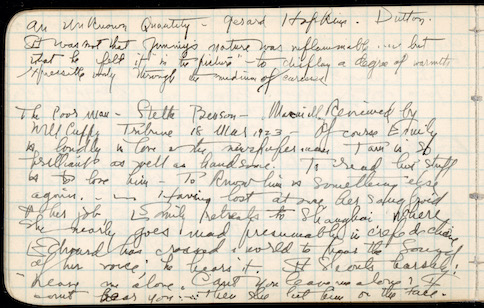 An Unknown Quantity - Gerard Hopkins. Dutton.
It was not that Jimmy's nature was inflammable ... but
that he felt it "in the picture" to display a degree of warmth
expressible only through the medium of caresses
The Poor Man - Stella Benson - Macmill. Reviewed by
Will Cuppy Tribune 18 Mar 1923 - Of course Emily
is fondly in love the newspaper man Tam is so
brilliant as well as handsome. To read his stuff
is to love him To know him is something else
again. Having lost at one her good
her job Emily retreats to Shanghai where
she nearly goes mad presumably in crepe de chine
Edward has crossed world to hear the Song of
of her voice he hears it. It shouts harshly:
"Leave me alone. Can't you leave me alone? I
can't bear you." Then she hit him on the face.